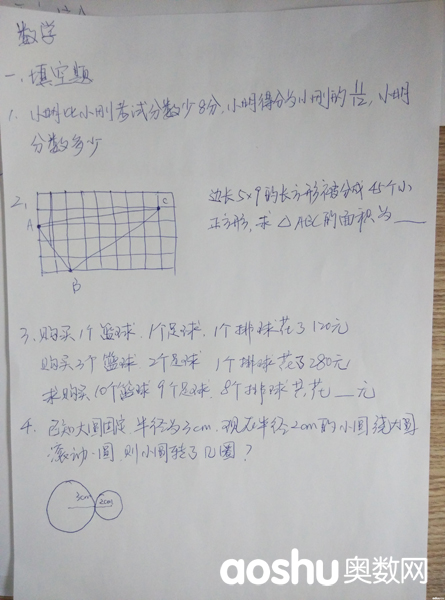 数学
一、填空题
1、小明比小刚考试分数少8分,小明得分为小刚的11/12,小明
分数多少
2、
A
B
C
边长5×9的长方形被分成45个小
正方形,求△ABC的面积为____
3、购买1个篮球、1个足球、1个排球花了120元
购买3个篮球 2个足球 1个排球花了280元
求购买10个篮球9个足球、8个排球共花__元
4、已知大圆固定,半径为3cm,现在半径2cm的小圆绕大圆
滚动一圈 则小圆转了几圈?
3cm 2cm
aoshu奥数网